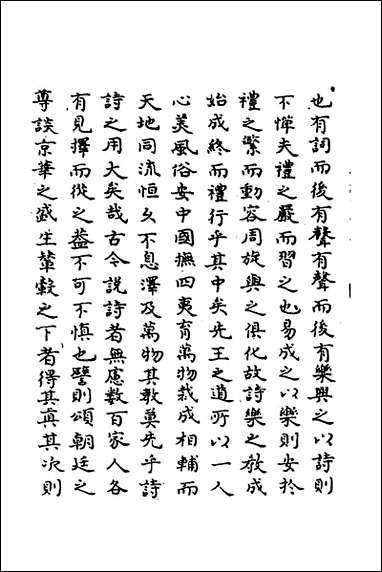 也有詞而後有聲有聲而後有樂興之以詩則
不憚夫禮之嚴而習之也易成之以樂則安於
禮之縏而動容周旋與之俱化故詩樂之教成
始成終而禮行乎其中矣先王之道所以一人
心美風俗安中國撫四夷育萬物裁成相輔而
天地同流恒久不息澤及萬物其教莫先乎詩
詩之用大矣哉古今説詩者無慮數百家人各
有見擇而從之葢不可不慎也譬則頌朝廷之
尊談京華之盛生輦轂之下者得其真其次則